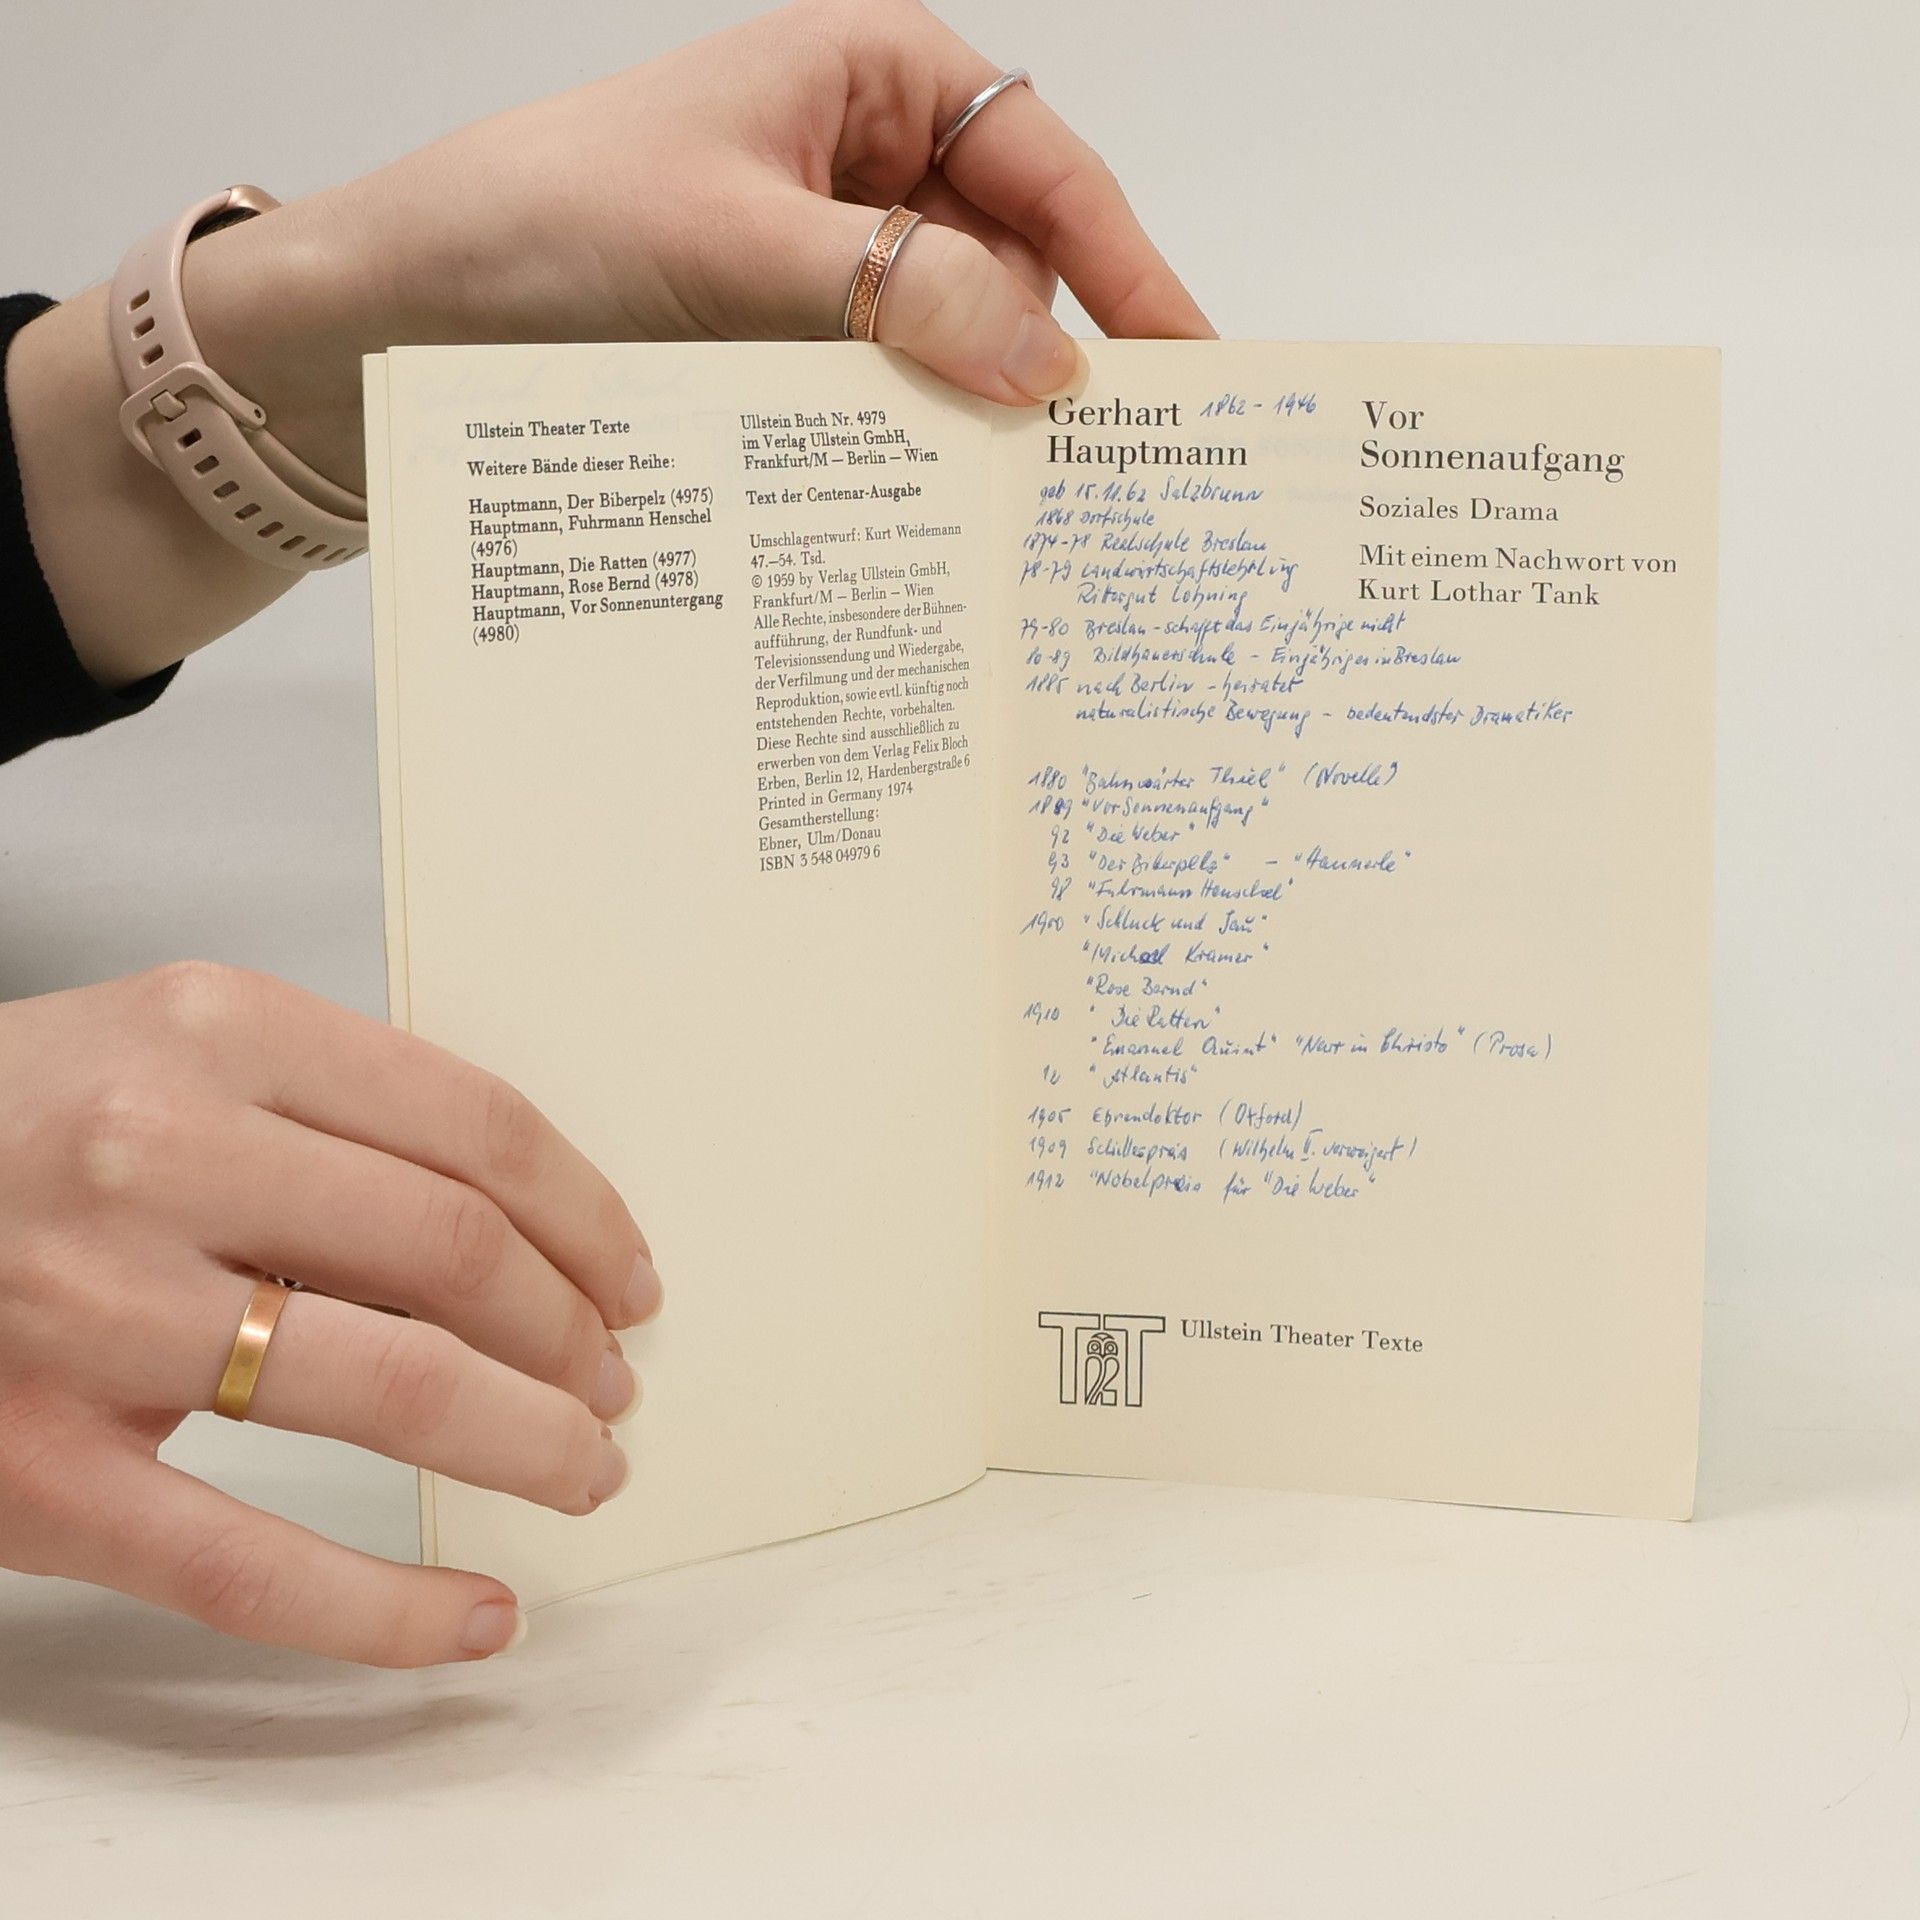 Ullstein Theater Texte
Weitere Bände dieser Reihe:
Hauptmann, Der Biberpelz (4975)
Hauptmann, Fuhrmann Henschel
(4976)
Hauptmann, Die Ratten (4977)
Hauptmann, Rose Bernd (4978)
Hauptmann, Vor Sonnenuntergang
(4980)
Ullstein Buch Nr. 4979
im Verlag Ullstein GmbH,
Frankfurt/M — Berlin — Wien
Text der Centenar-Ausgabe
Umschlagentwurf: Kurt Weidemann
47.–54. Tsd.
© 1959 by Verlag Ullstein GmbH,
Frankfurt/M — Berlin — Wien
Alle Rechte, insbesondere der Bühnen-
aufführung, der Rundfunk- und
Televisionssendung und Wiedergabe,
der Verfilmung und der mechanischen
Reproduktion, sowie evtl. künftig noch
entstehenden Rechte, vorbehalten.
Diese Rechte sind ausschließlich zu
erwerben von dem Verlag Felix Bloch
Erben, Berlin 12, Hardenbergstraße 6
Printed in Germany 1974
Gesamtherstellung:
Ebner, Ulm/Donau
ISBN 3 548 04979 6
Gerhart 1862 - 1946
Hauptmann
Vor
Sonnenaufgang
Soziales Drama
Mit einem Nachwort von
Kurt Lothar Tank
geb 15.11.62 Salzbrunn
1868 Dorfschule
1874-78 Realschule Breslau
78-79 Landwirtschaftslehrling
Rittergut Lohning
79-80 Breslau - schafft das Einjährige nicht
80-89 Bildhauerschule - Einjähriges in Breslau
1885 nach Berlin - heiratet
naturalistische Bewegung - bedeutendster Dramatiker
1880 "Bahnwärter Thiel" (Novelle)
1889 "Vor Sonnenaufgang"
92 "Die Weber"
93 "Der Biberpelz" - "Hannerle"
98 "Fuhrmann Henschel"
1900 "Schluck und Jau"
"Michael Kramer"
"Rose Bernd"
1910 "Die Ratten"
"Emanuel Quint" "Narr in Christo" (Prosa)
12 "Atlantis"
1905 Ehrendoktor (Oxford)
1909 Schillerpreis (Wilhelm II. verweigert)
1912 "Nobelpreis für "Die Weber"
TT Ullstein Theater Texte